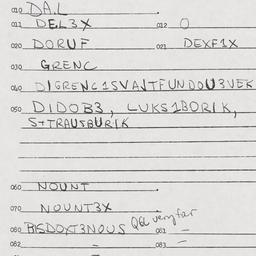 010 DA.L
011 DEL3X 012 O
020 DORUF 021 DEXF1X
030 GRENC
040 DIGRENC1SVAJTFUNDOU3VEK
050 DIDOB3, LUKS1BORIK,
S+TRAUTBURIK
060 NOUNT
070 NOUNT3X
080 BISDOXT3NOUS QBL very far 081 -
082 - 083 -